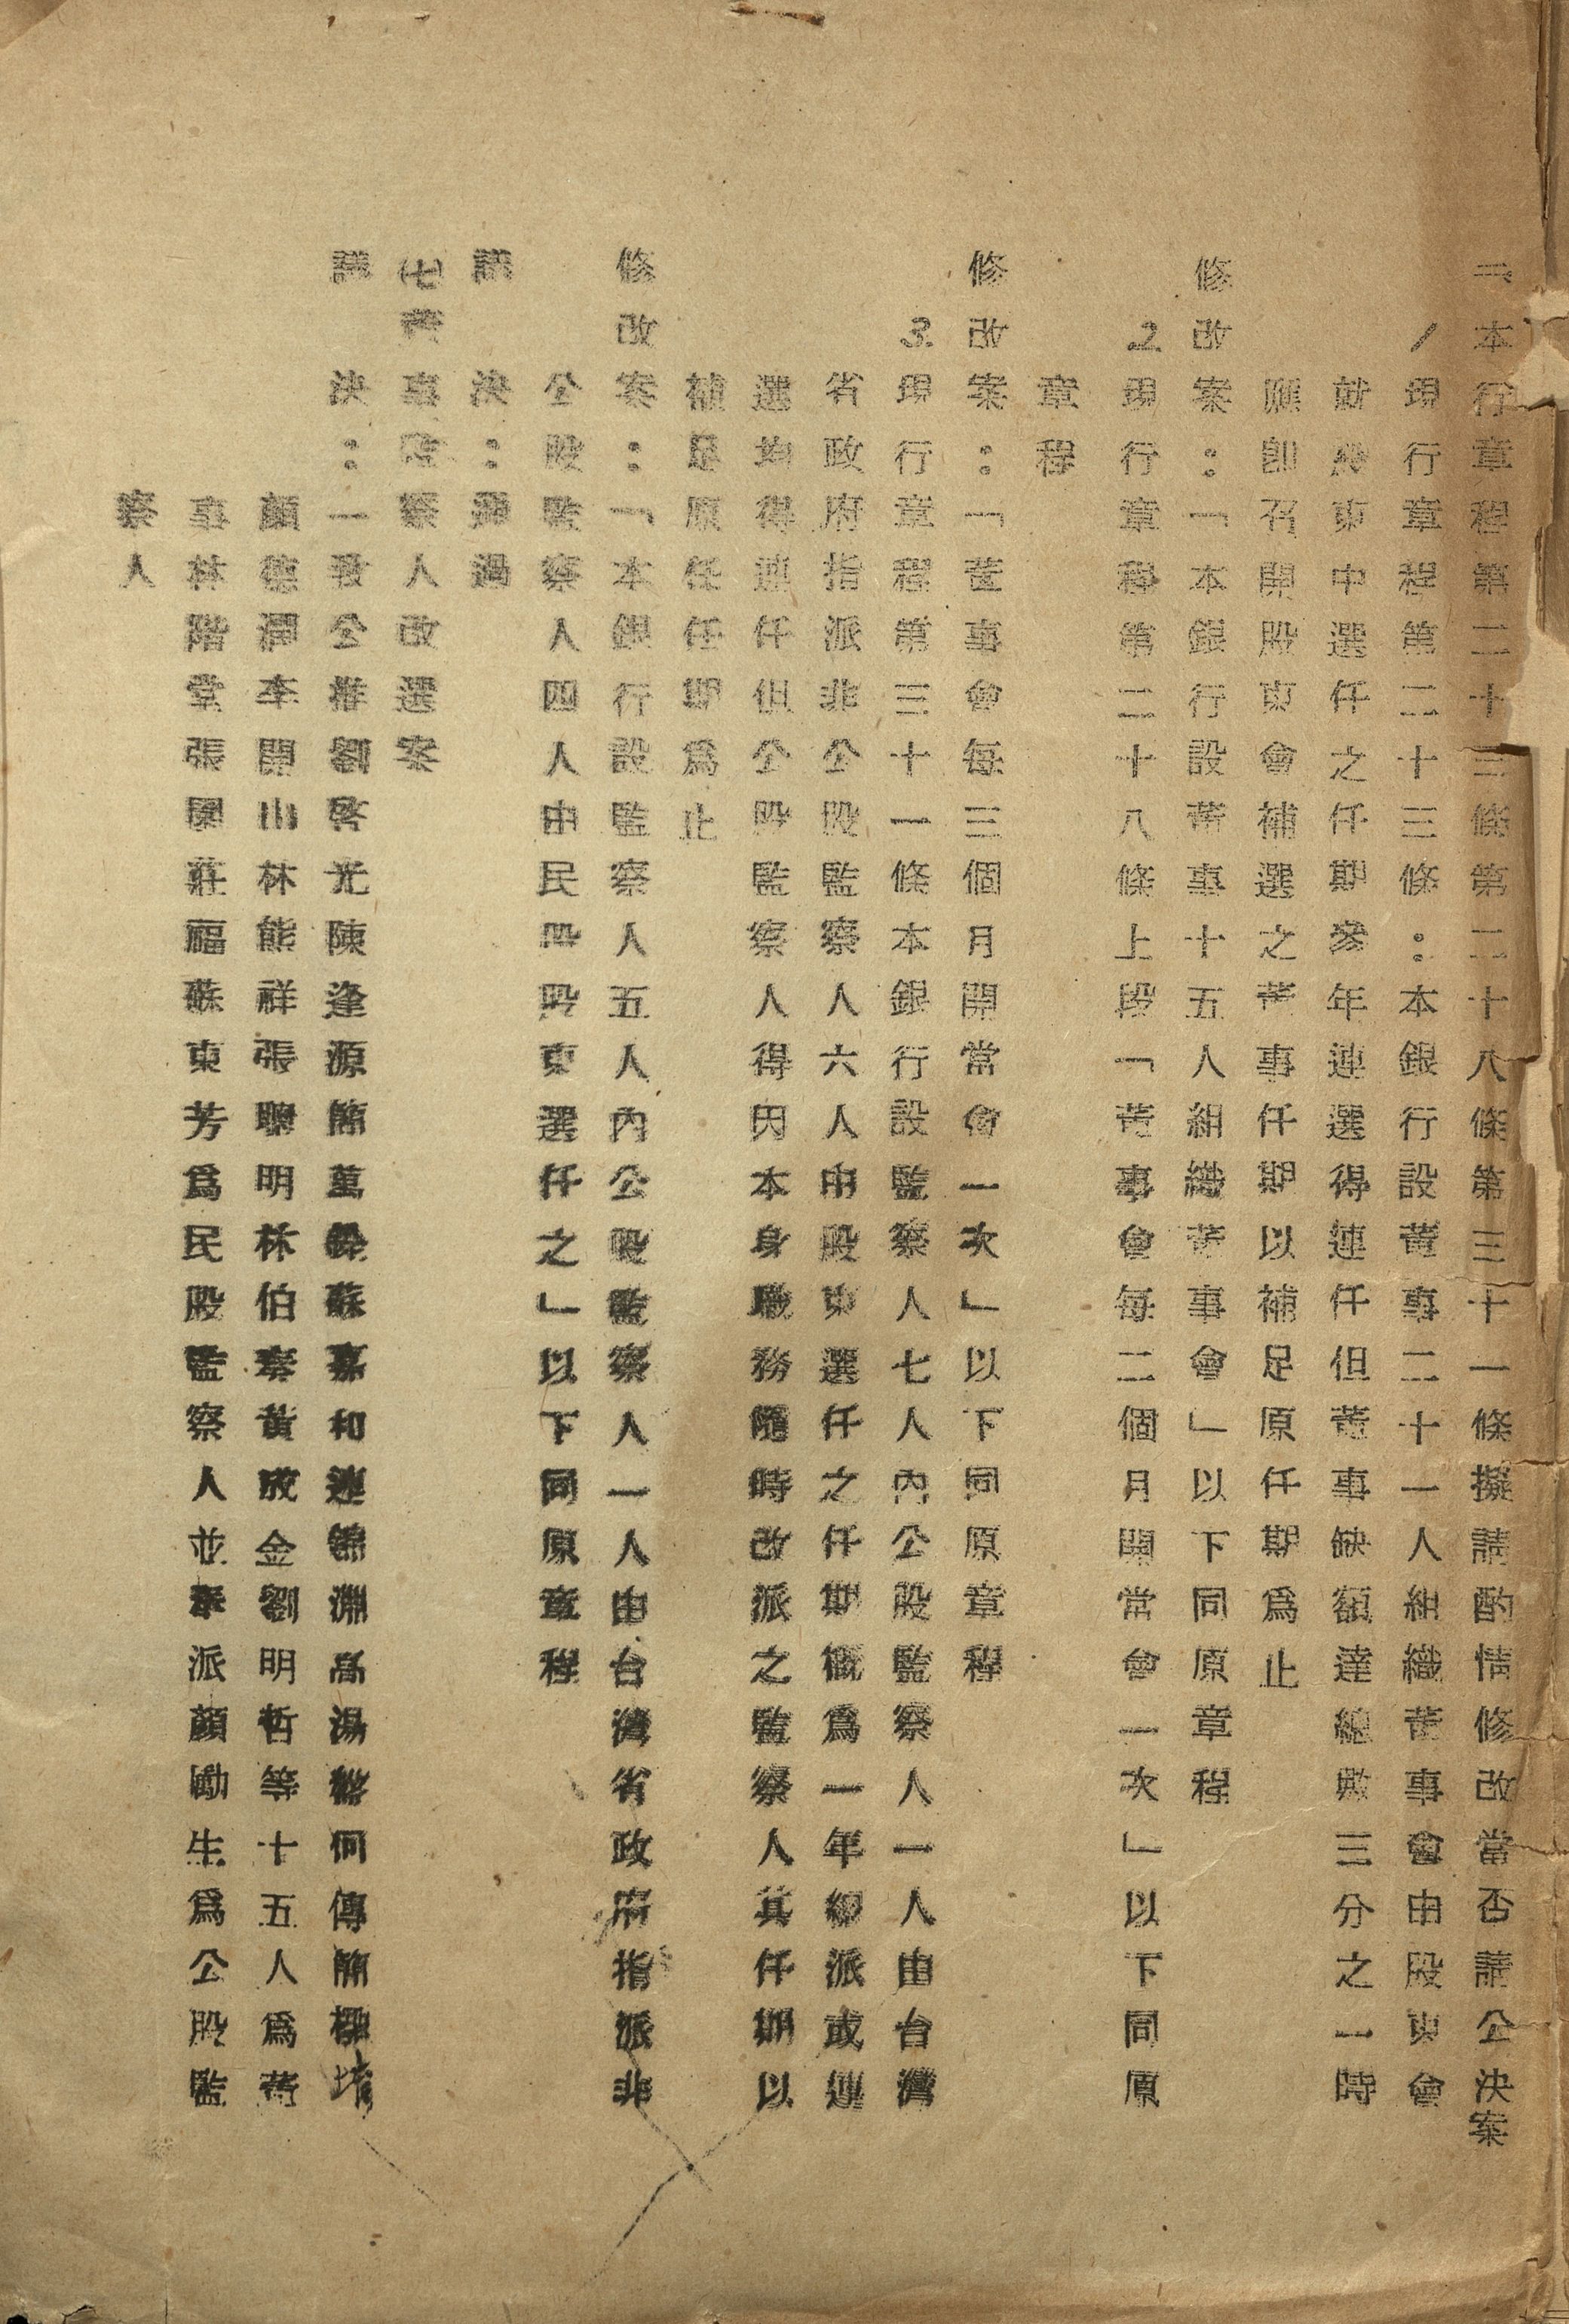 二本行章程第二十三條第二十八條第三十一條擬請酌情修改當否請公決案
1現行章程第二十三條：本銀行設董事二十一人組織董事會由股東會
就股東中選任之任期參年連選得連任但董事缺額達總數三分之一時
應即召開股東會補選之董事任期以補足原任期為止
修改案：「本銀行設董事十五人組織董事會」以下同原章程
2.現行章程第二十八條上段「董事會每二個月開常會一次」以下同原
章程
修改案：「董事會每三個月開常會一次」以下同原章程
3.現行章程第三十一條本銀行設監察人七人內公股監察人一人由台灣
省政府指派非公股監察人六人由股東選任之任期概為一年經派或連
選均得連任但公股監察人得因本身職務隨時改派之監察人其任期以
補足原任任期為止
修改案：「本銀行設監察人五人內公股監察人一人由台灣省政府指派非
公股監察人四人由民股股東選任之」以下同原章程
議決：通過
(七)董事監察人改選案
議決：一致公推劉啓光陳逢源簡萬銓蘇嘉和連錦淵高湯盤何傳簡檉堉
顏德潤李開山林熊祥張聰明林伯奏黃成金劉明哲等十五人為董
事林階堂張園莊福蘇東芳為民股監察人並奉派顏勵生為公股監
察人